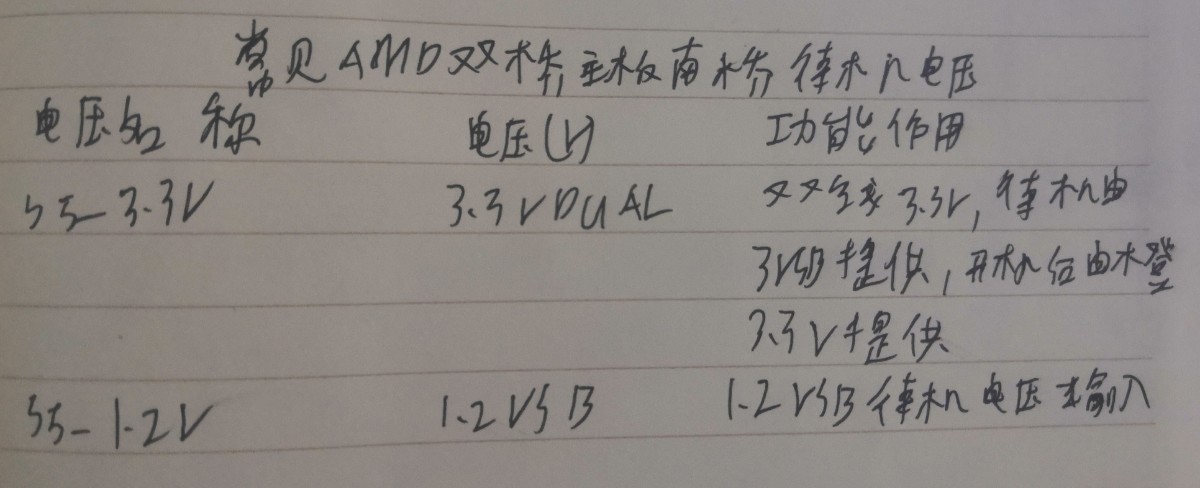 常见AMD双桥主板南桥待机电压
电压名称 电压(V) 功能作用
S5_3.3V 3.3VDUAL 双线3.3V,待机由
3VSB提供,开机后由橙
3.3V提供
S5_1.2V 1.2VSB 1.2VSB待机电压输入